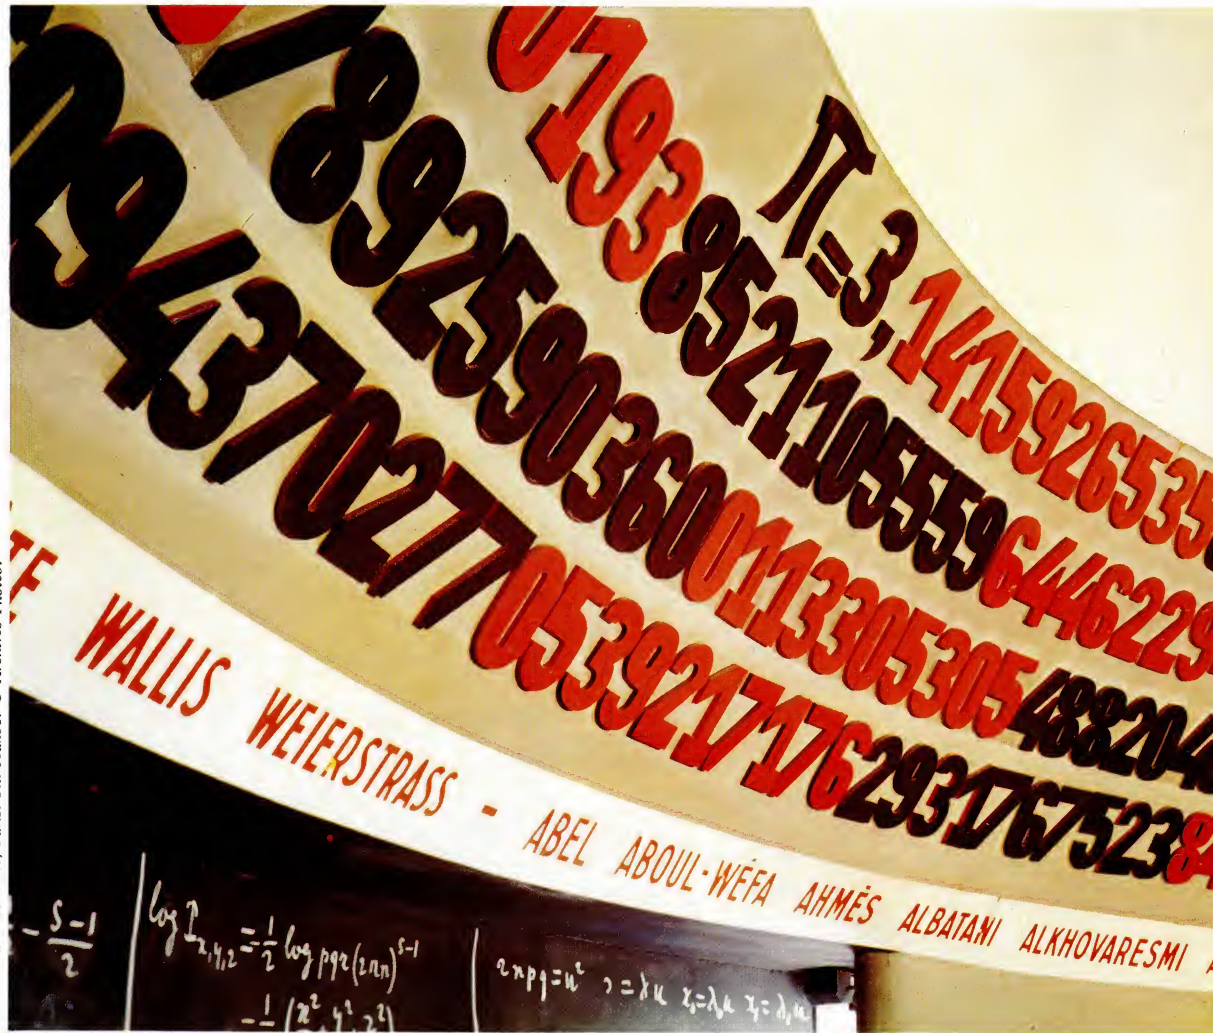 Π=3,1415926535
019385211055596446229
78925903600113305305488204
0943702770539217176293176752384
TE WALLIS WEIERSTRASS - ABEL ABOUL-WÉFA AHMÈS ALBATANI ALKHOVARESMI
- S-1/2
log I x,y,z = 1/2 log pqr(2πn)^S-1
-1 (x² y² z²)
2πpq=u²